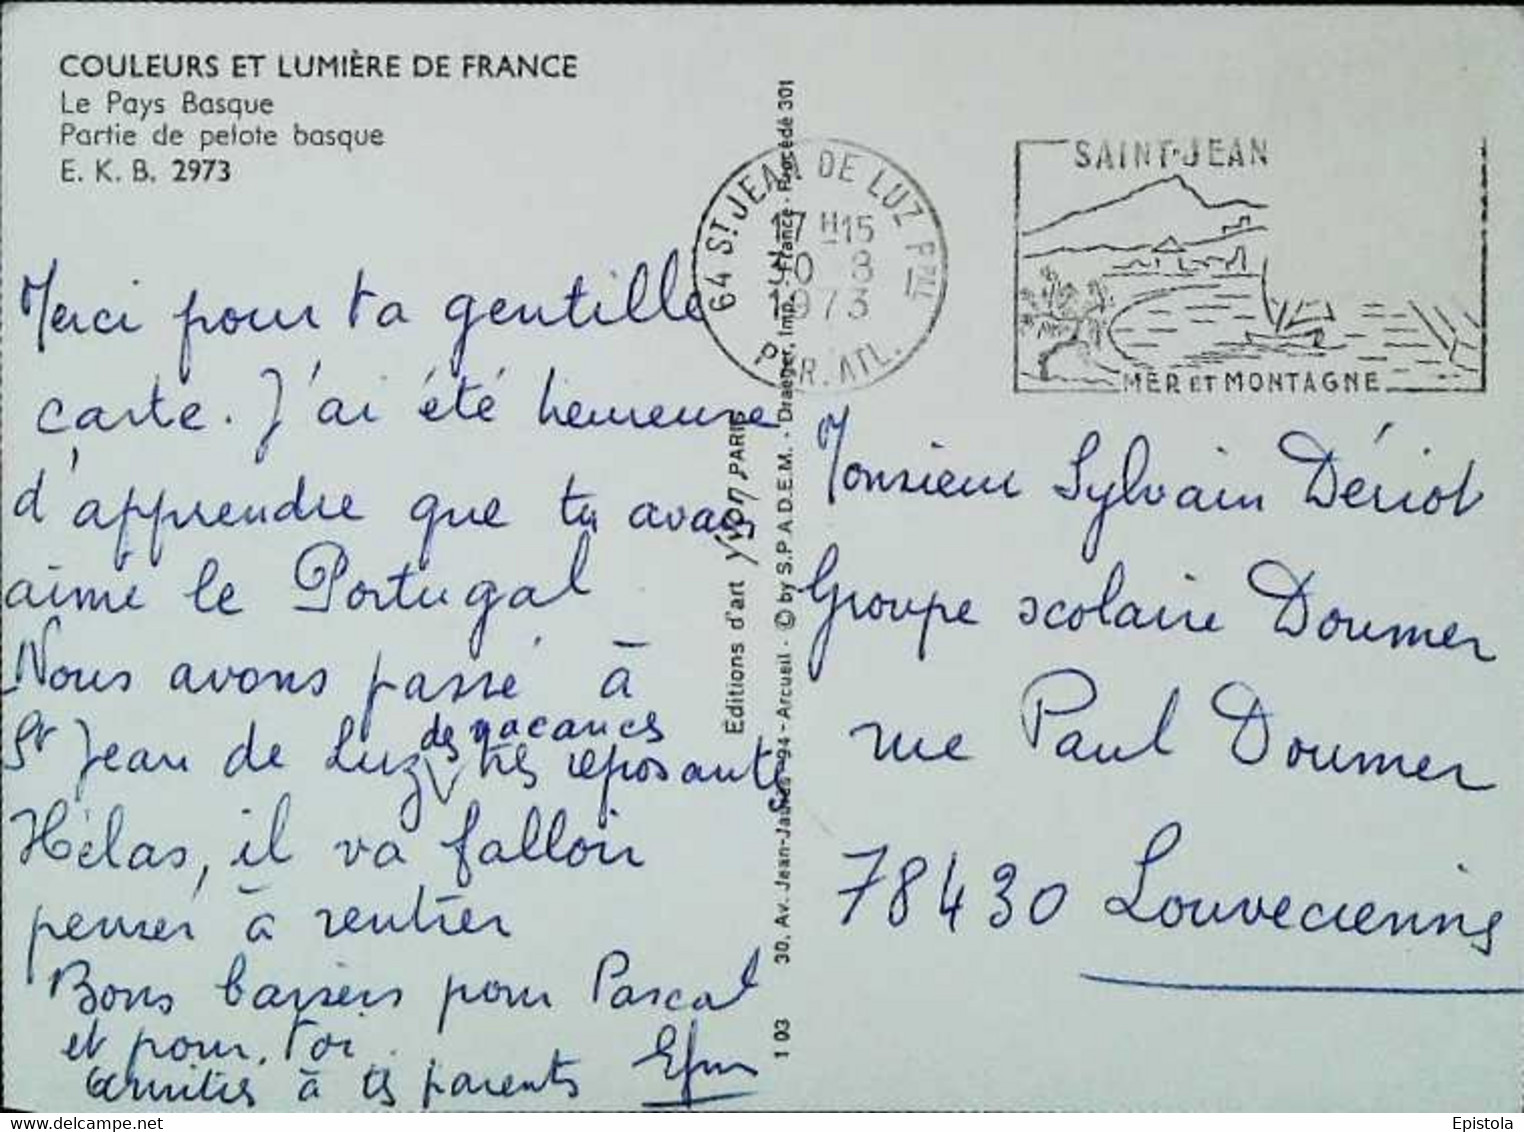 COULEURS ET LUMIÈRE DE FRANCE
Le Pays Basque
Partie de pelote basque
E. K. B. 2973
64 ST JEAN DE LUZ PPAL
17 H15
30 8
1973
PYR. ATL.
SAINT-JEAN
MER ET MONTAGNE
Merci pour ta gentille
carte. J'ai été heureuse
d'apprendre que tu avais
aimé le Portugal
Nous avons passé à
St Jean de Luz des vacances
très reposantes
Hélas, il va falloir
penser à rentrer
Bons baisers pour Pascal
et pour toi
amitiés à tes parents
Editions d'art Yvon PARIS
30, Av. Jean-Jaurès 94 - Arcueil - © by S.P.A.D.E.M. - Draeger, Imp. - France - Procédé 301
1 03
Monsieur Sylvain Dériot
Groupe scolaire Doumer
rue Paul Doumer
78430 Louveciennes
Epistola